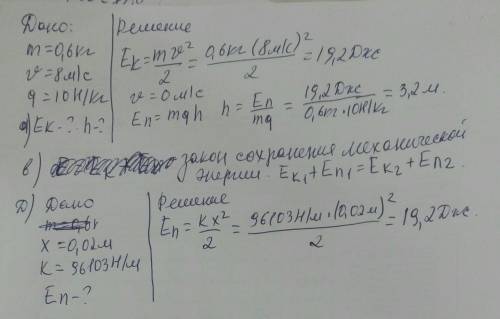 Дано:
m=0,6кг
v=8м/с
q=10Н/кг
а) Ек-? h-?
Решение
Eк = mv²/2 = 0,6кг(8м/с)²/2 = 19,2Дж
v=0м/с
Eп=mqh h = Eп/mq = 19,2Дж/0,6кг·10Н/кг = 3,2м.
в) закон сохранения механической
энергии. Eк1+Eп1=Eк2+Eп2.
Д) Дано
x=0,02м
K=96103Н/м
Eп-?
Решение
Eп = Kx²/2 = 96103Н/м·(0,02м)²/2 = 19,2Дж.